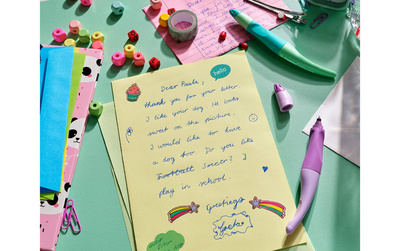 hello
Dear Paula,
thank you for your letter.
I like your dog. He looks
sweet on the picture.
I would like to have
a dog too. Do you like
Football Soccer? I
play in school.
Greetings